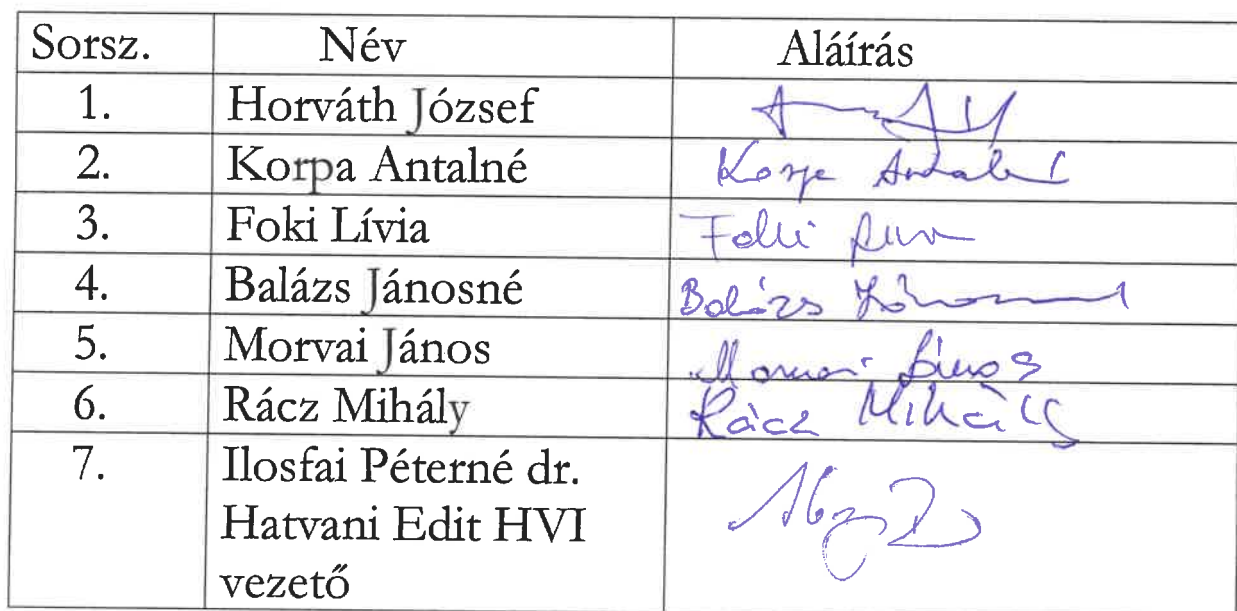 Sorsz. Név Aláírás
1. Horváth József
2. Korpa Antalné Korpa Antalné
3. Foki Lívia Foki
4. Balázs Jánosné Balázs Jánosné
5. Morvai János Morvai János
6. Rácz Mihály Rácz Mihály
7. Ilosfai Péterné dr.
Hatvani Edit HVI
vezető